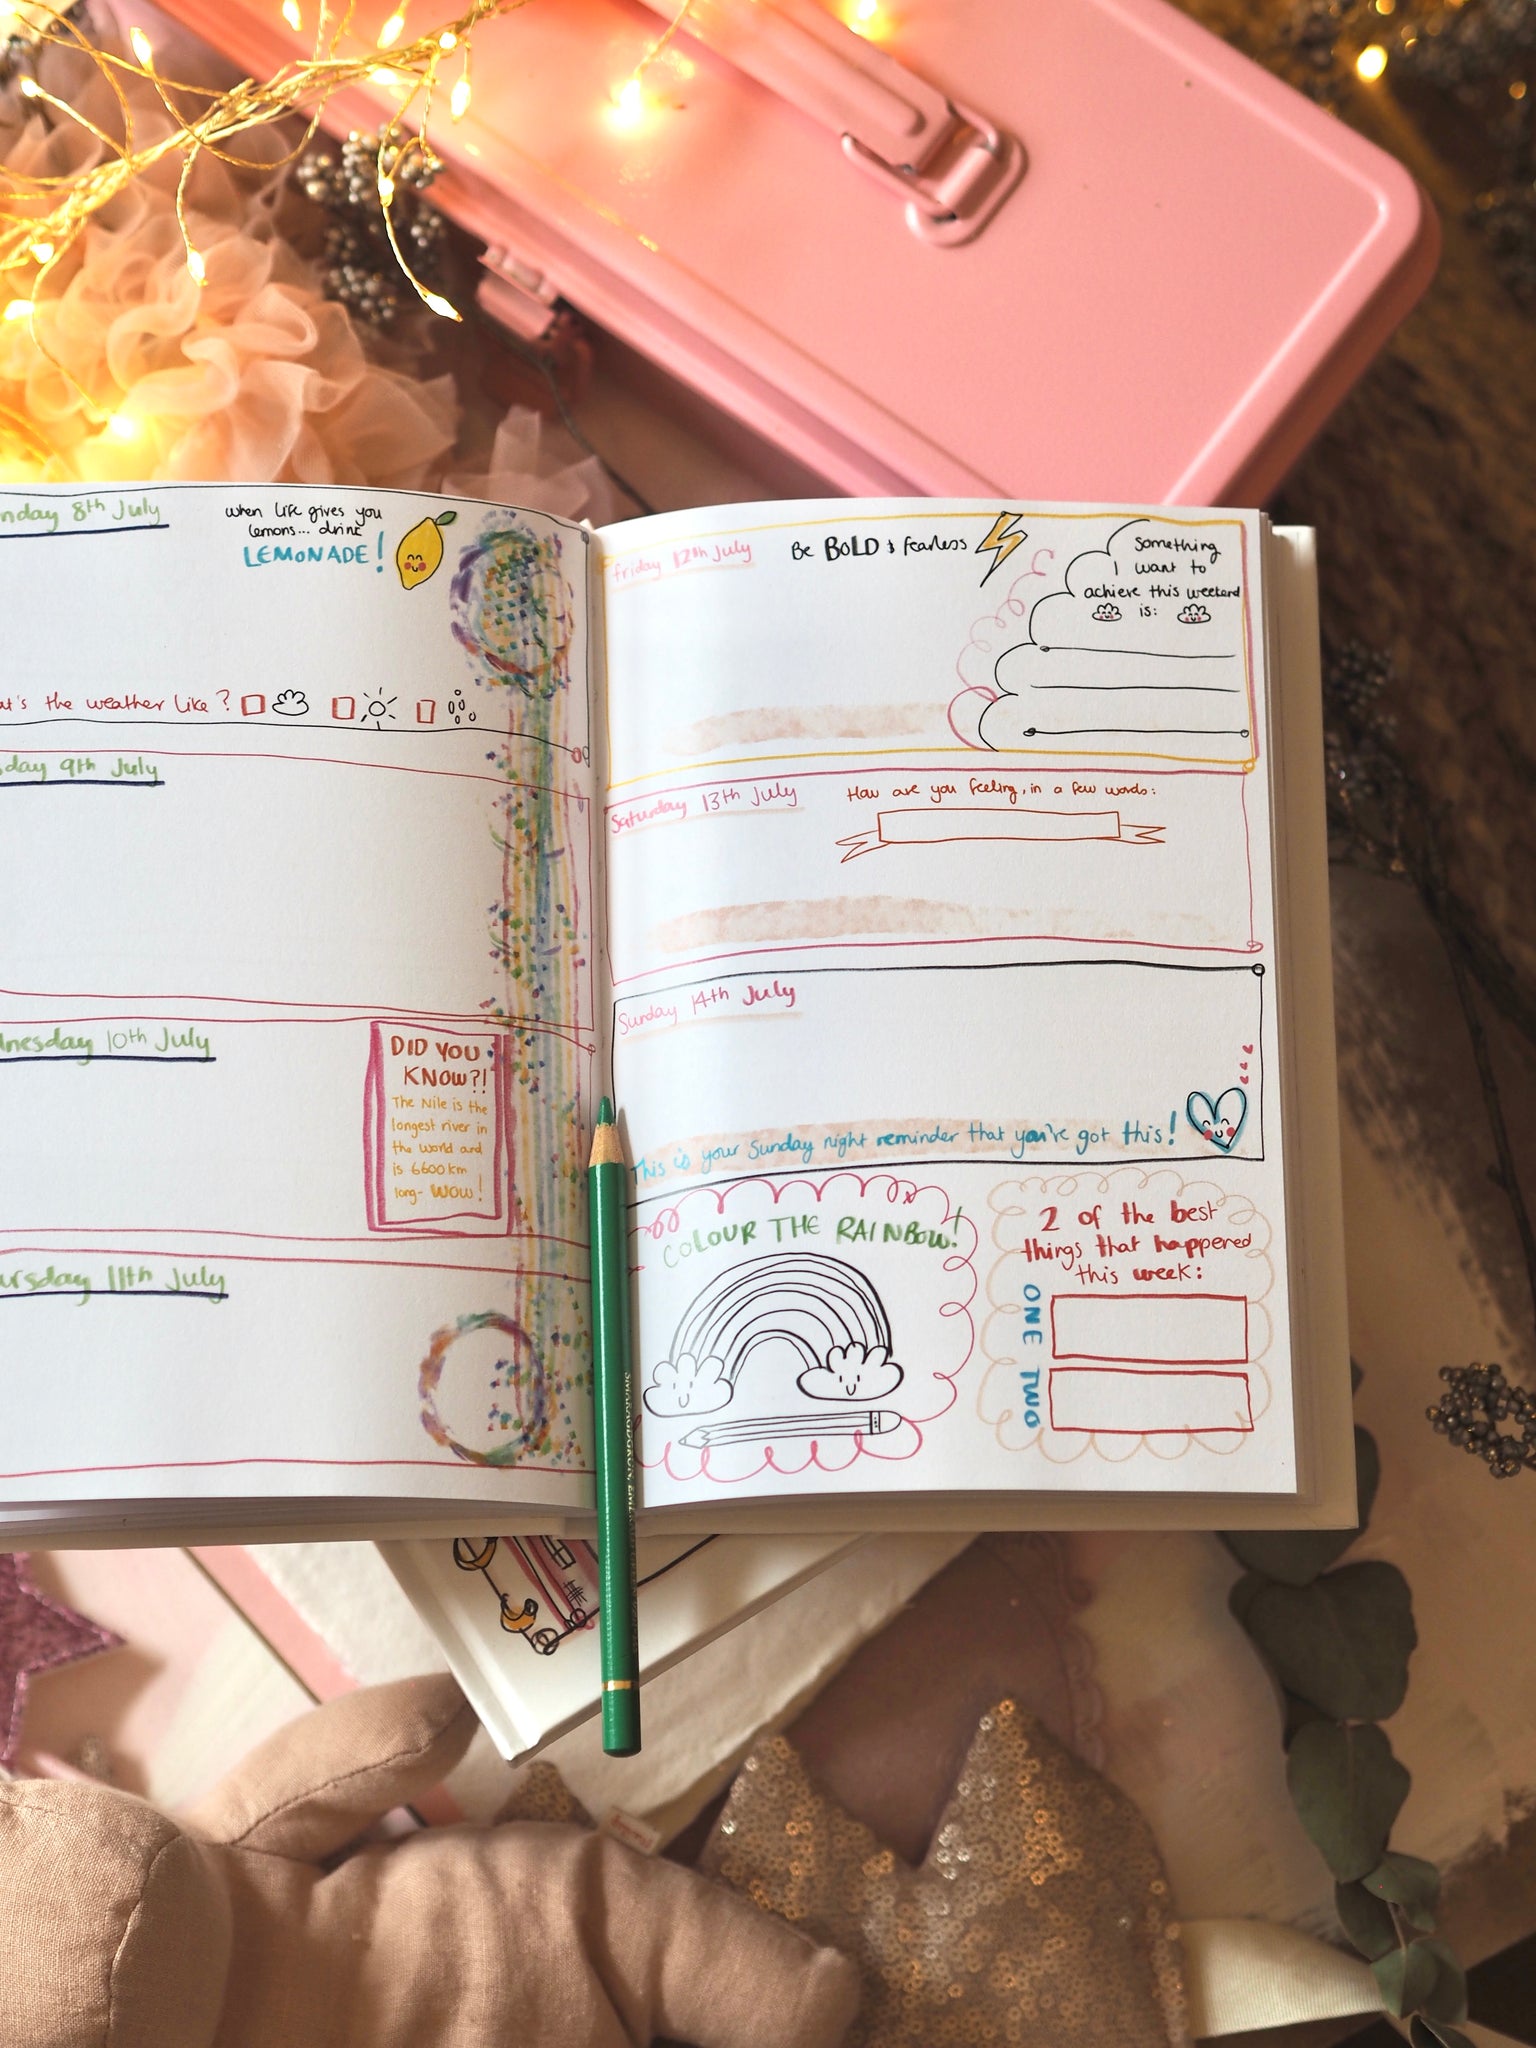 8th July
when life gives you
lemons... drink
LEMONADE!
the weather like?
9th July
10th July
DID YOU
KNOW?!
The Nile is the
longest river in
the world and
is 6600km
long- WOW!
11th July
Friday 12th July
Be BOLD & fearless
Something
I want to
achieve this weekend
is:
Saturday 13th July
How are you feeling, in a few words:
Sunday 14th July
This is your Sunday night reminder that you've got this!
COLOUR THE RAINBOW!
2 of the best
things that happened
this week:
ONE
TWO